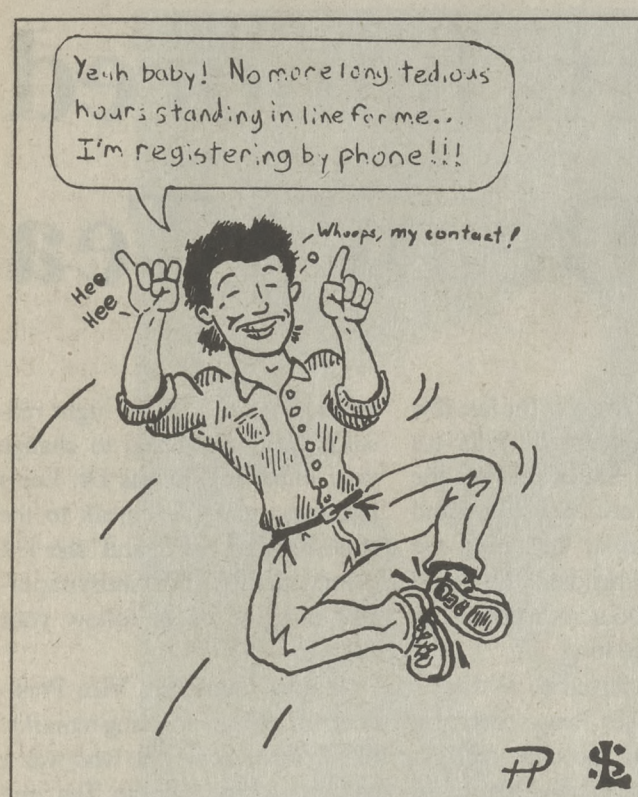 Yeah baby! No more long tedious
hours standing in line for me..
I'm registering by phone!!!
Whoops, my contact!
Hee
Hee